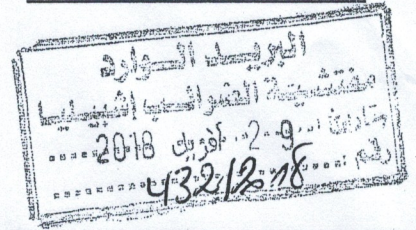 البريد الوارد
مفتشية الضرائب إشبيليا
تاريخ: 2-9 أفريل 2018
رقم: 432/2018